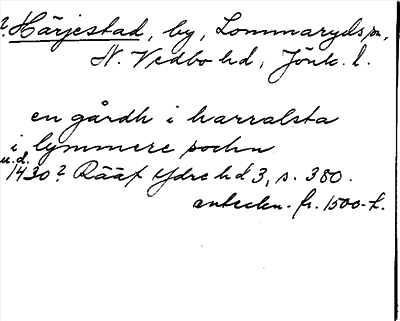 ? Härjestad, by, Lommaryds sn,
N. Vedbo hd, Jönk. l.
en gårdh i harralsta
i lymmere sochn
u.d.
1430? Rääf Ydre hd 3, s. 380.
anteckn. fr. 1500-t.